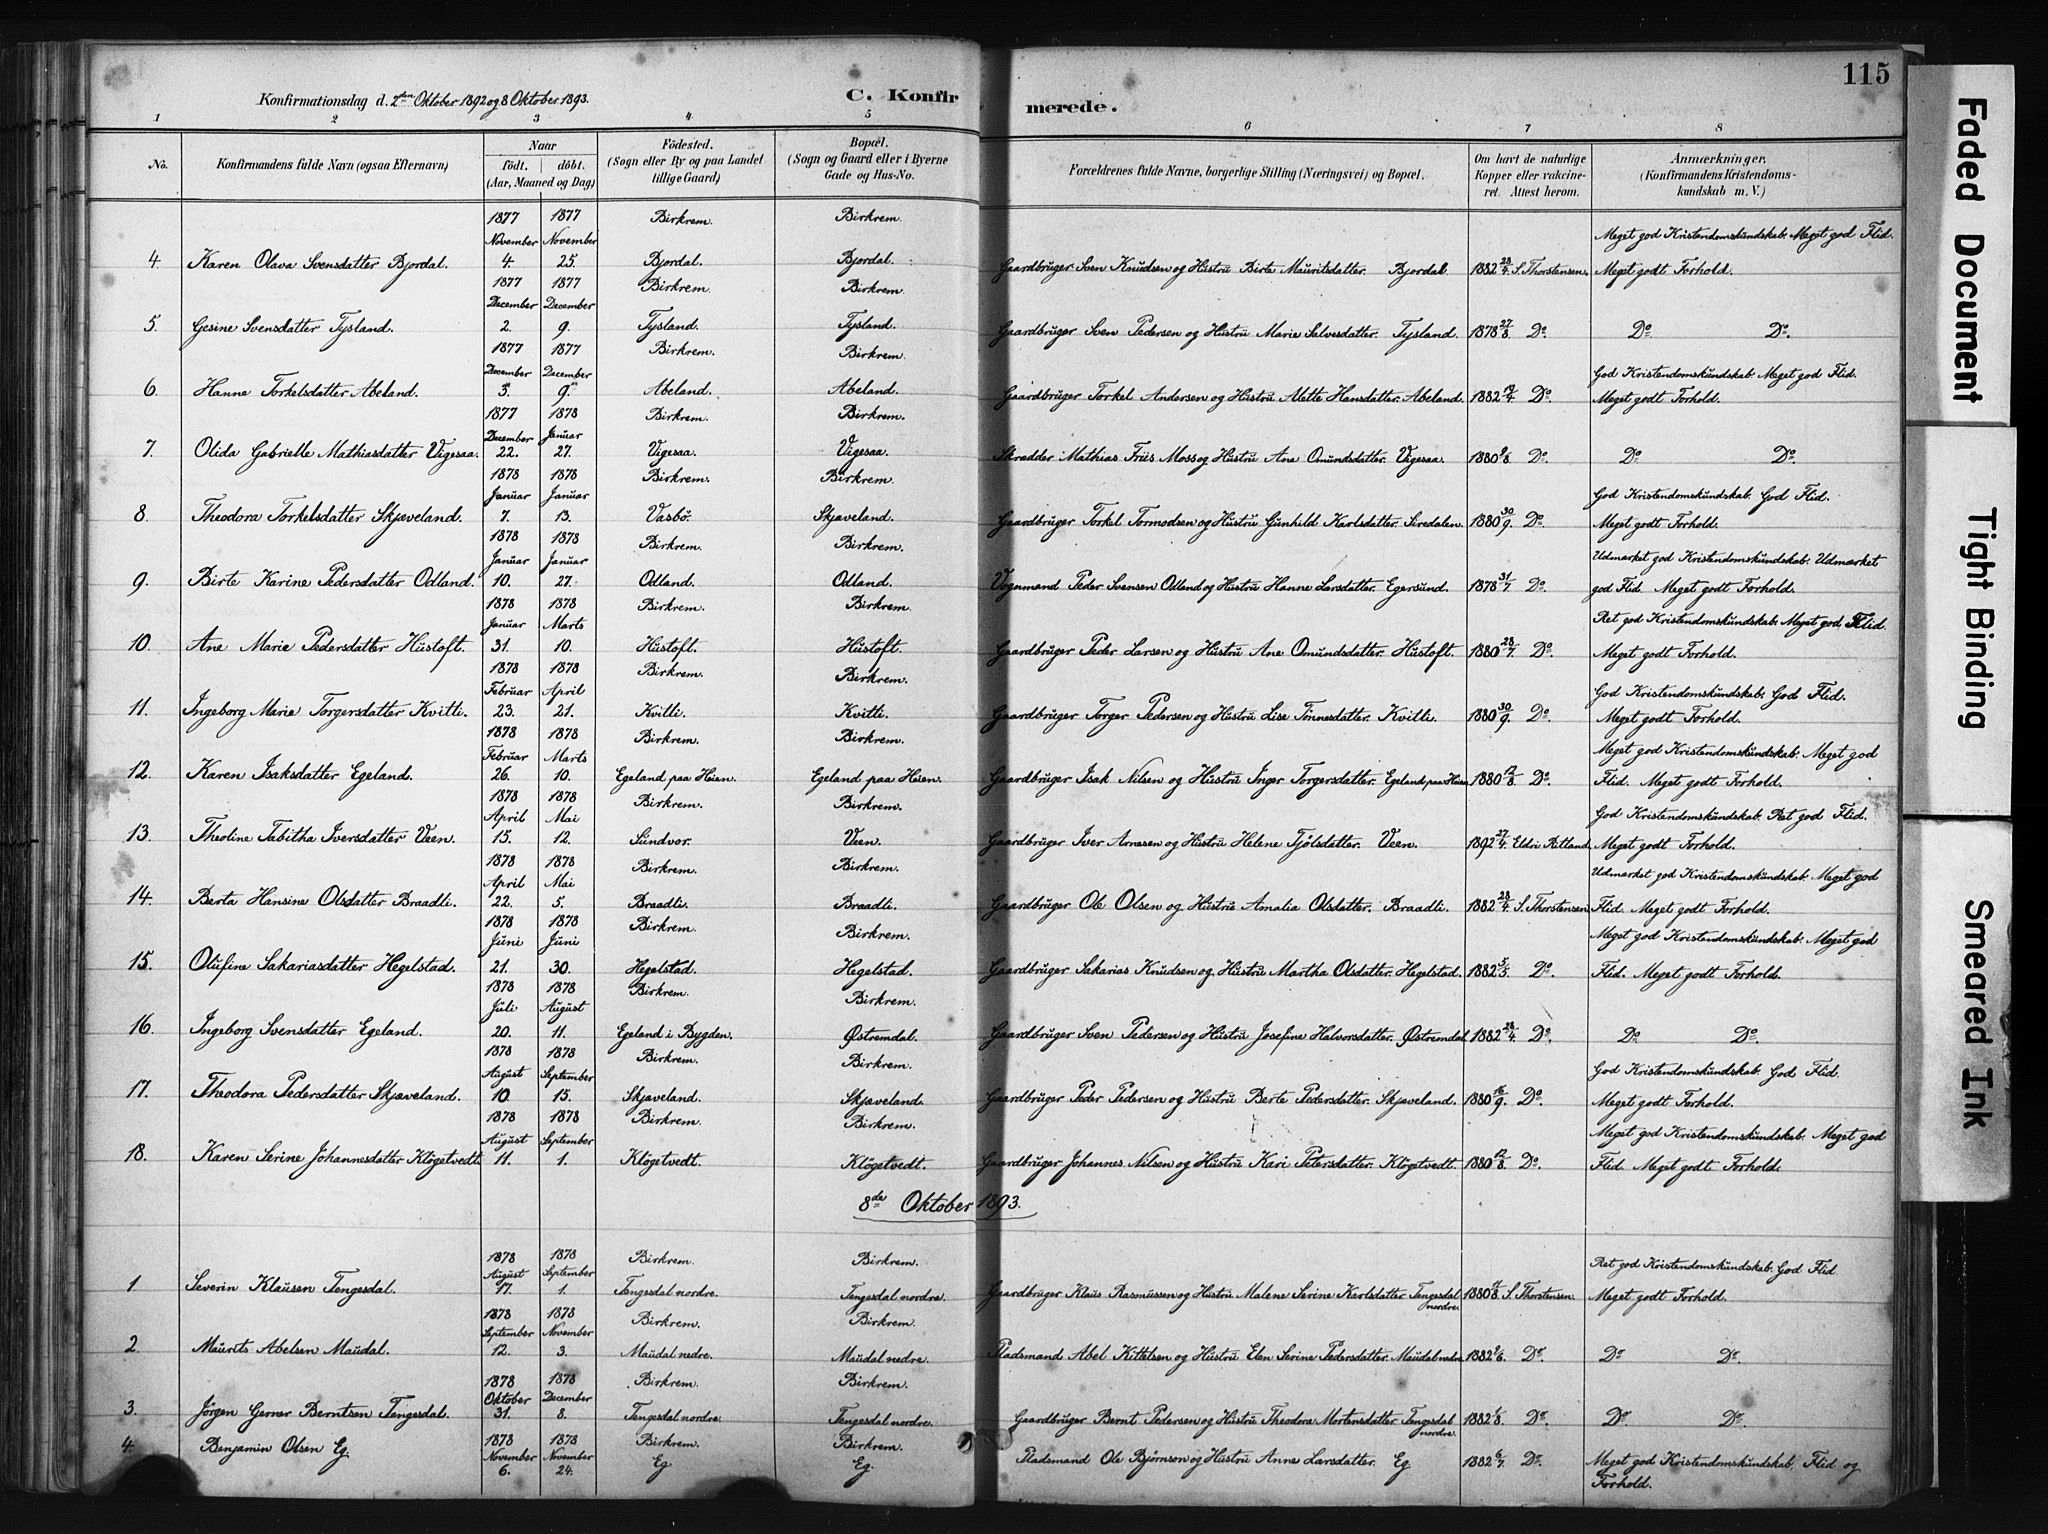 115
Konfirmationsdag d. 2den Oktober 1892 og 8 Oktober 1893.
C. Konfirmerede.
1 2 3 4 5 6 7 8
No. Konfirmandens fulde Navn (ogsaa Efternavn) Naar födt. döbt. (Aar, Maaned og Dag) Födested. (Sogn eller By og paa Landet tillige Gaard) Bopæl. (Sogn og Gaard eller i Byerne Gade og Hus-No. Forældrenes fulde Navne, borgerlige Stilling (Næringsvei) og Bopæl. Om havt de naturlige Kopper eller vakcineret. Attest herom. Anmærkninger. (Konfirmandens Kristendomskundskab m. V.)
1877 November 1877 November Birkrem. Birkrem. Meget god Kristendomskundskab. Meget god Flid.
4. Karen Olava Svensdatter Bjordal. 4. 25. Bjordal. Bjordal. Gaardbruger Sven Knudsen og Hustru Birte Mauritsdatter. Bjordal. 1882 28/4. S. Thorstensen. Meget godt Forhold.
1877 December 1877 December Birkrem. Birkrem.
5. Gesine Svensdatter Tysland. 2. 9. Tysland. Tysland. Gaardbruger Sven Pedersen og Hustru Marie Salvesdatter. Tysland. 1878 27/8. Do. Do Do.
1877 December 1877 December Birkrem. Birkrem. God Kristendomskundskab. Meget god Flid.
6. Hanne Torkelsdatter Abeland. 3. 9. Abeland. Abeland. Gaardbruger Torkel Andersen og Hustru Alette Hansdatter. Abeland. 1882 19/4 Do. Meget godt Forhold.
1877 December 1878 Januar Birkrem. Birkrem.
7. Olida Gabrielle Mathiasdatter Vigesaa. 22. 27. Vigesaa. Vigesaa. Skrædder Mathias Friis Moss og Hustru Ane Omundsdatter. Vigesaa. 1880 9/8. Do. Do Do.
1878 Januar 1878 Januar Birkrem. Birkrem. God Kristendomskundskab. God Flid.
8. Theodora Torkelsdatter Skjæveland. 7. 13. Vasbö. Skjæveland. Gaardbruger Torkel Tormodsen og Hustru Gunhild Karlsdatter. Siredalen. 1880 30/9. Do. Meget godt Forhold.
1878 Januar 1878 Januar Birkrem. Birkrem. Udmærket god Kristendomskundskab. Udmærket
9. Birte Karine Pedersdatter Odland. 10. 27. Odland. Odland. Vognmand Peder Svensen Odland og Hustru Hanne Larsdatter. Egersund. 1878 31/7. Do. god Flid. Meget godt Forhold.
1878 Januar 1878 Marts Birkrem. Birkrem. Ret god Kristendomskundskab. Meget god Flid.
10. Ane Marie Pedersdatter Hustoft. 31. 10. Hustoft. Hustoft. Gaardbruger Peder Larsen og Hustru Ane Omundsdatter. Hustoft. 1880 28/7. Do. Meget godt Forhold.
1878 Februar 1878 April Birkrem. Birkrem. God Kristendomskundskab. God Flid.
11. Ingeborg Marie Torgersdatter Kvitli. 23. 21. Kvitli. Kvitli. Gaardbruger Torger Pedersen og Hustru Lise Tönnesdatter. Kvitli. 1880 30/9. Do. Meget godt Forhold.
1878 Februar 1878 Marts Birkrem. Birkrem. Meget god Kristendomskundskab. Meget god
12. Karen Isaksdatter Egeland. 26. 10. Egeland paa Heien. Egeland paa Heien. Gaardbruger Isak Nilsen og Hustru Inger Torgersdatter. Egeland paa Heien 1880 12/8. Do. Flid. Meget godt Forhold.
1878 April 1878 Mai Birkrem. Birkrem. God Kristendomskundskab. Ret god Flid.
13. Theoline Tabitha Iversdatter Veen. 15. 12. Sundvor. Veen. Gaardbruger Iver Arnesen og Hustru Helene Tjölsdatter. Veen. 1892 27/4. Eldri Ritland. Meget godt Forhold.
1878 April 1878 Mai Birkrem. Birkrem. Udmærket god Kristendomskundskab. Meget god
14. Berta Hansine Olsdatter Braadli. 22. 5. Braadli. Braadli. Gaardbruger Ole Olsen og Hustru Amalia Olsdatter. Braadli. 1882 28/4. S. Thorstensen Flid. Meget godt Forhold.
1878 Juni 1878 Juni Birkrem. Birkrem. Meget god Kristendomskundskab. Meget god
15. Olufine Sakariasdatter Hegelstad. 21. 30. Hegelstad. Hegelstad. Gaardbruger Sakarias Knudsen og Hustru Martha Olsdatter. Hegelstad. 1882 5/5. Do. Flid. Meget godt Forhold.
1878 Juli 1878 August Birkrem. Birkrem.
16. Ingeborg Svensdatter Egeland. 20. 11. Egeland i Bygden. Østremdal. Gaardbruger Sven Pedersen og Hustru Josefine Halvorsdatter. Østremdal 1882 28/4. Do. Do Do.
1878 August 1878 September Birkrem. Birkrem. God Kristendomskundskab. God Flid.
17. Theodora Pedersdatter Skjæveland. 10 15. Skjæveland. Skjæveland. Gaardbruger Peder Pedersen og Hustru Berte Pedersdatter. Skjæveland. 1880 16/9. Do. Meget godt Forhold.
1878 August 1878 September Birkrem. Birkrem. Meget god Kristendomskundskab. Meget god
18. Karen Serine Johannesdatter Klögetvedt. 11. 1. Klögetvedt. Klögetvedt. Gaardbruger Johannes Nilsen og Hustru Kari Petersdatter. Klögetvedt. 1880 12/8. Do. Flid. Meget godt Forhold.
8de Oktober 1893.
1878 August 1878 September Birkrem. Birkrem. Ret god Kristendomskundskab. God Flid
1 Severin Klausen Tengesdal. 17. 1. Tengesdal nordre. Tengesdal nordre. Gaardbruger Klaus Rasmussen og Hustru Malene Serine Karlsdatter Tengesdal nordre. 1880 S. Thorstensen. Meget godt Forhold.
1878 September 1878 November Birkrem. Birkrem.
2. Maurits Abelsen Maudal. 12. 3. Maudal nedre. Maudal nedre. Pladsmand Abel Kittelsen og Hustru Elen Serine Pedersdatter. Maudal nedre 1882 9/6. Do. Do Do.
1878 Oktober 1878 December Birkrem. Birkrem.
3. Jörgen Gerner Berntsen Tengesdal. 31. 8. Tengesdal nordre. Tengesdal nordre. Gaardbruger Bernt Pedersen og Hustru Theodora Mortensdatter. Tengesdal nordre. 1882 1/8. Do. Do Do.
4. Benjamin Olsen Eg. 1878 November 6. 1878 November 24. Birkrem. Eg Birkrem. Eg. Pladsmand Ole Björnson og Hustru Anne Larsdatter. Eg 1882 6/7. Do. Meget god Kristendomskundskab, Flid og Forhold.
Faded Document
Tight Binding
Smeared Ink